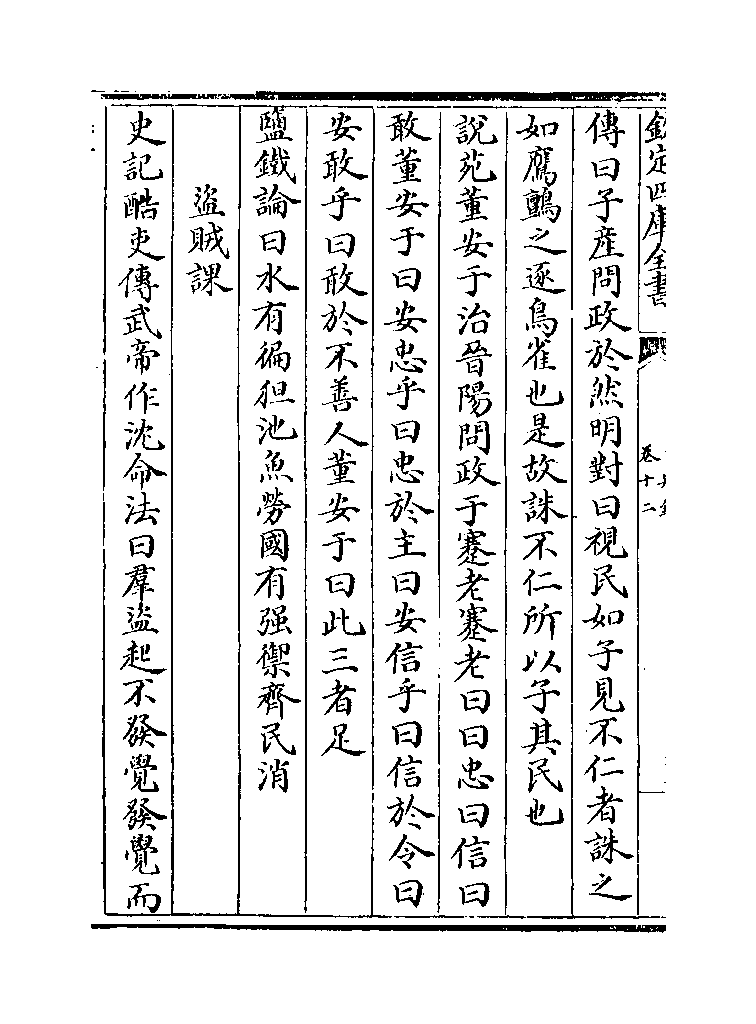 欽定四庫全書
卷十二
傳曰子産問政於然明對曰視民如子見不仁者誅之
如鷹鸇之逐鳥雀也是故誅不仁所以子其民也
說苑董安于治晉陽問政于蹇老蹇老曰曰忠曰信曰
敢董安于曰安忠乎曰忠於主曰安信乎曰信於令曰
安敢乎曰敢於不善人董安于曰此三者足
鹽鐵論曰水有猵狚池魚勞國有强禦齊民消
盜賊課
史記酷吏傳武帝作沈命法曰羣盜起不發覺發覺而